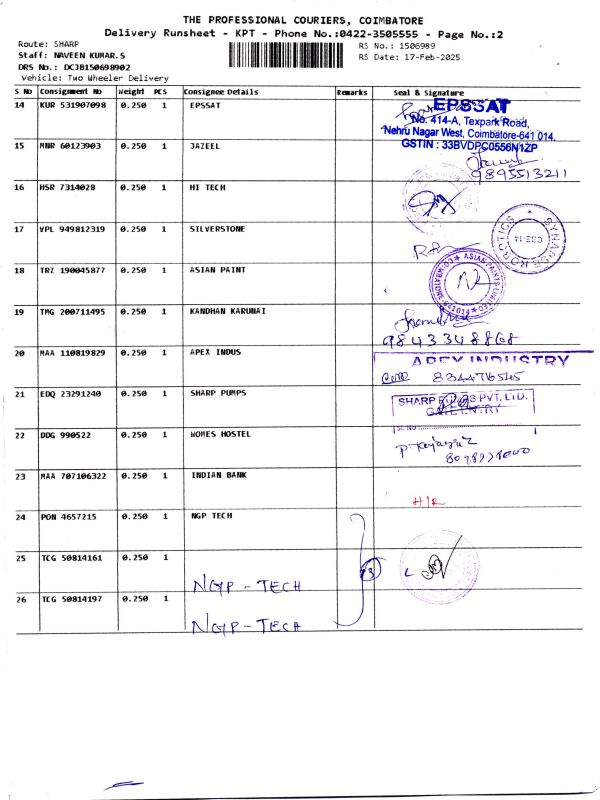 THE PROFESSIONAL COURIERS, COIMBATORE
Delivery Runsheet - KPT - Phone No.:0422-3505555 - Page No.:2
Route: SHARP
RS No.: 1506989
Staff: NAVEEN KUMAR.S
RS Date: 17-Feb-2025
DRS No.: DCJB150698902
Vehicle: Two Wheeler Delivery
S No Consignment No Weight PCS Consignee Details Remarks Seal & Signature
14 KUR 531907098 0.250 1 EPSSAT
EPSSAT
No. 414-A, Texpark Road,
Nehru Nagar West, Coimbatore-641 014.
GSTIN : 33BVDPC0556N1ZP
15 MNR 60123903 0.250 1 JAZEEL
9895513211
16 HSR 7314028 0.250 1 HI TECH
17 VPL 949812319 0.250 1 SILVERSTONE
SYNAPSE ROBOTICS
CBE-14
18 TRZ 190045877 0.250 1 ASIAN PAINT
ASIAN PAINTS LIMITED
COIMBATORE 641014
19 TMG 200711495 0.250 1 KANDHAN KARUNAI
9843348868
20 MAA 110819829 0.250 1 APEX INDUS
APEX INDUSTRY
21 EDQ 23291240 0.250 1 SHARP PUMPS
SHARP PUMPS PVT. LTD.
GATE ENTRY
SL NO
22 DDG 990522 0.250 1 WOMES HOSTEL
23 MAA 707106322 0.250 1 INDIAN BANK
H/R
24 PON 4657215 0.250 1 NGP TECH
25 TCG 50814161 0.250 1
NGP-TECH
3
26 TCG 50814197 0.250 1
NGP-TECH